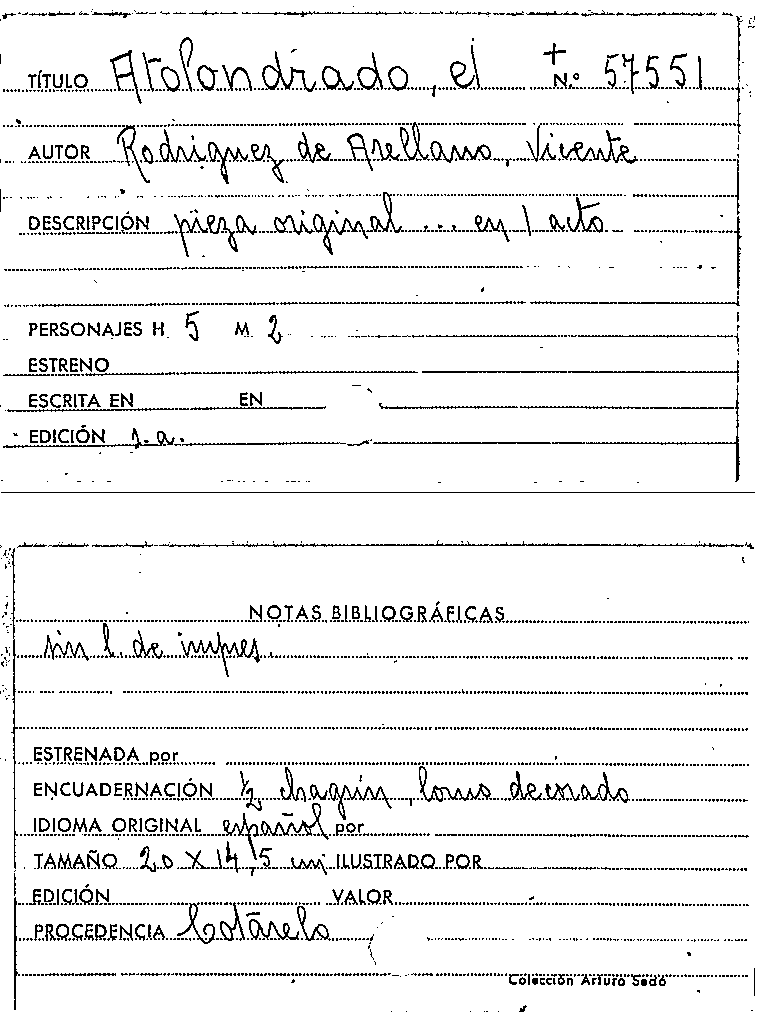 TÍTULO Atolondrado, el + N.º 57551
AUTOR Rodriguez de Arellano, Vicente
DESCRIPCIÓN pieza original ... en 1 acto
PERSONAJES H. 5 M. 2
ESTRENO
ESCRITA EN EN
EDICIÓN s.a.
NOTAS BIBLIOGRÁFICAS
sin l. de impres.
ESTRENADA por
ENCUADERNACIÓN ½ chagrin, lomo decorado
IDIOMA ORIGINAL español por
TAMAÑO 20 X 14,5 cm ILUSTRADO POR
EDICIÓN VALOR
PROCEDENCIA Cotarelo
Colección Arturo Sedó